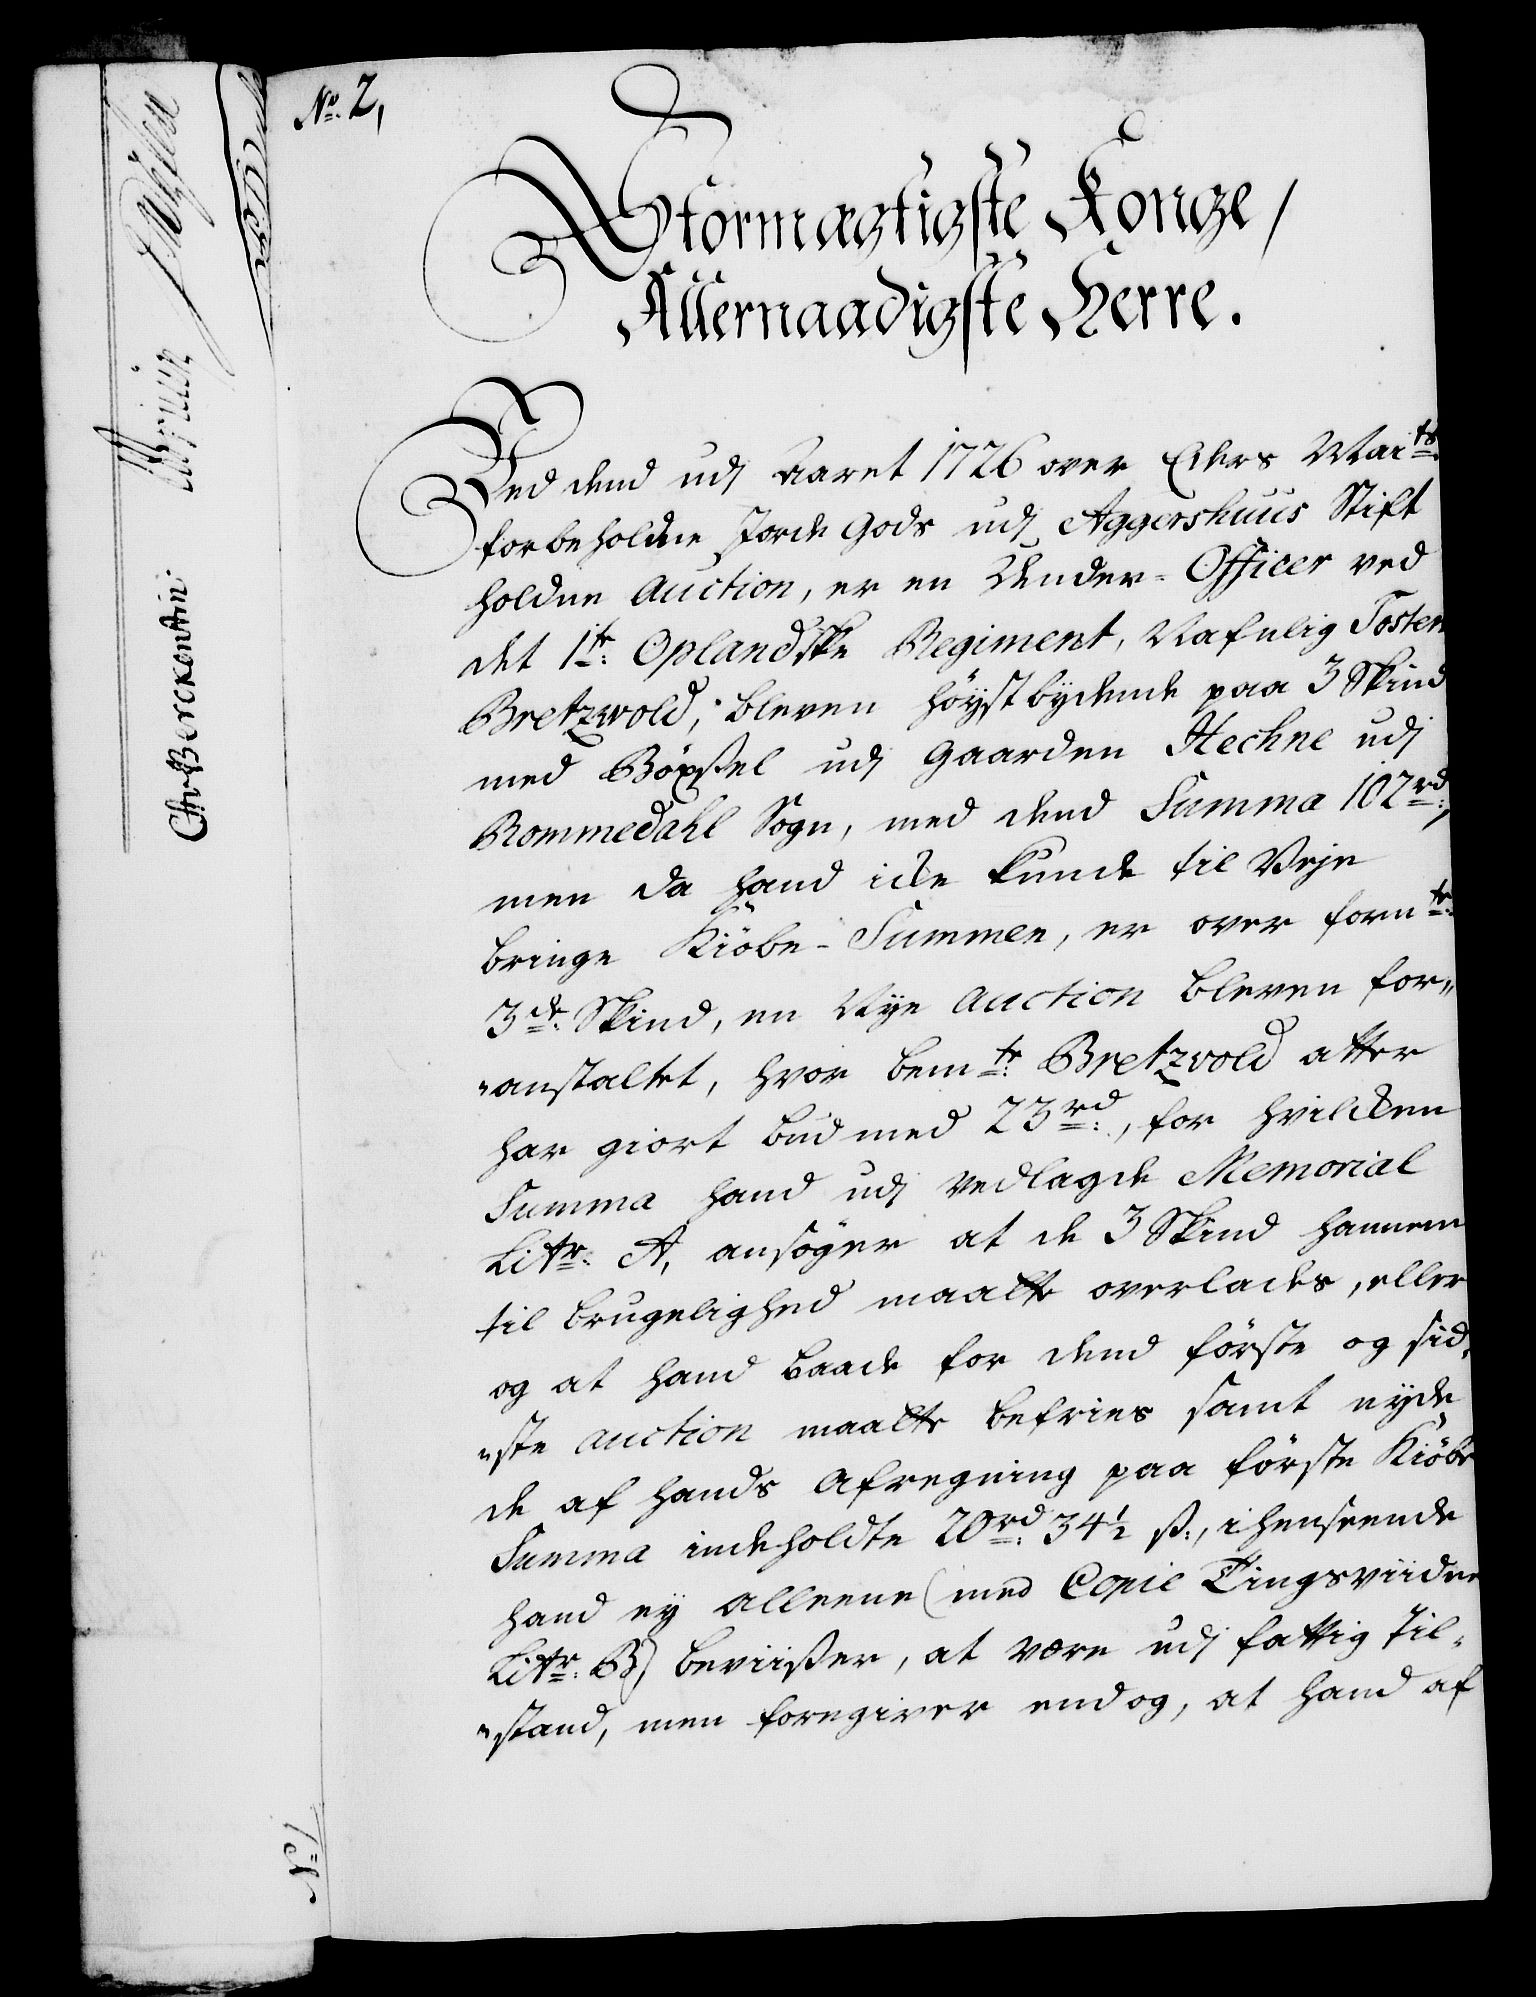 No. 2,
Stormægtigste Konge,
Allernaadigste Herre.
Ved dend udj Aaret 1726 over Eders Maits
forbeholdne Jorde Gods udj Aggershuus Stift
holdne Auction, er en Under-Officer ved
det 1te: Oplandske Regiment, Nafnlig Tosten
Bretzwold, bleven höystbydende paa 3 Skind
med Böxsel udj Gaarden Hechne udj
Rommedahl Sogn, med dend Summa 102 rd:,
men da hand icke kunde til Veje
bringe Kiöbe-Summen, er over formte:
3de: Skind, en Nye Auction bleven for„
„anstaltet, hvor bemte: Bretzvold atter
har giort bud med 23 rd:, for hvilcken
Summa hand udj vedlagde Memorial
Litr: A, ansöger at de 3 Skind hannem
til brugelighed maatte overlades, eller
og at hand baade for dend förste og sid„
„ste Auction maatte befries samt nyde
de af hands Afregning paa förste Kiöbe
Summa indeholdte 20 rd: 34½ ß:, i henseende
hand ey alleene (med Copie Tingsviidne
Litr: B) beviisser, at være udj fattig Til„
„stand, men foregiver endog, at hand af
Chr Berckentin:
No 1